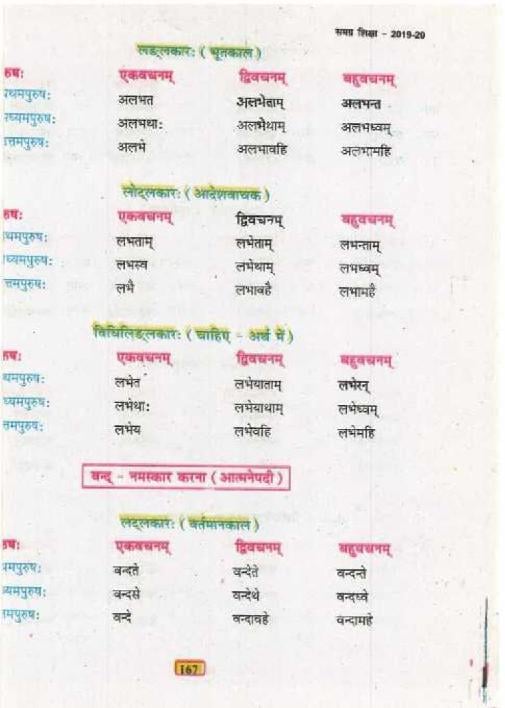 समग्र शिक्षा - 2019-20
लङ्लकारः ( भूतकाल )
रुषः एकवचनम् द्विवचनम् बहुवचनम्
थमपुरुषः अलभत अलभेताम् अलभन्त
ध्यमपुरुषः अलभथाः अलभेथाम् अलभध्वम्
त्तमपुरुषः अलभे अलभावहि अलभामहि
लोट्लकारः ( आदेशवाचक )
रुषः एकवचनम् द्विवचनम् बहुवचनम्
थमपुरुषः लभताम् लभेताम् लभन्ताम्
ध्यमपुरुषः लभस्व लभेथाम् लभध्वम्
त्तमपुरुषः लभै लभावहै लभामहै
विधिलिङ्लकारः ( चाहिए - अर्थ में )
रुषः एकवचनम् द्विवचनम् बहुवचनम्
थमपुरुषः लभेत लभेयाताम् लभेरन्
ध्यमपुरुषः लभेथाः लभेयाथाम् लभेध्वम्
तमपुरुषः लभेय लभेवहि लभेमहि
वन्द् - नमस्कार करना ( आत्मनेपदी )
लट्लकारः ( वर्तमानकाल )
रुषः एकवचनम् द्विवचनम् बहुवचनम्
मपुरुषः वन्दते वन्देते वन्दन्ते
यमपुरुषः वन्दसे वन्देथे वन्दध्वे
मपुरुषः वन्दे वन्दावहे वन्दामहे
167